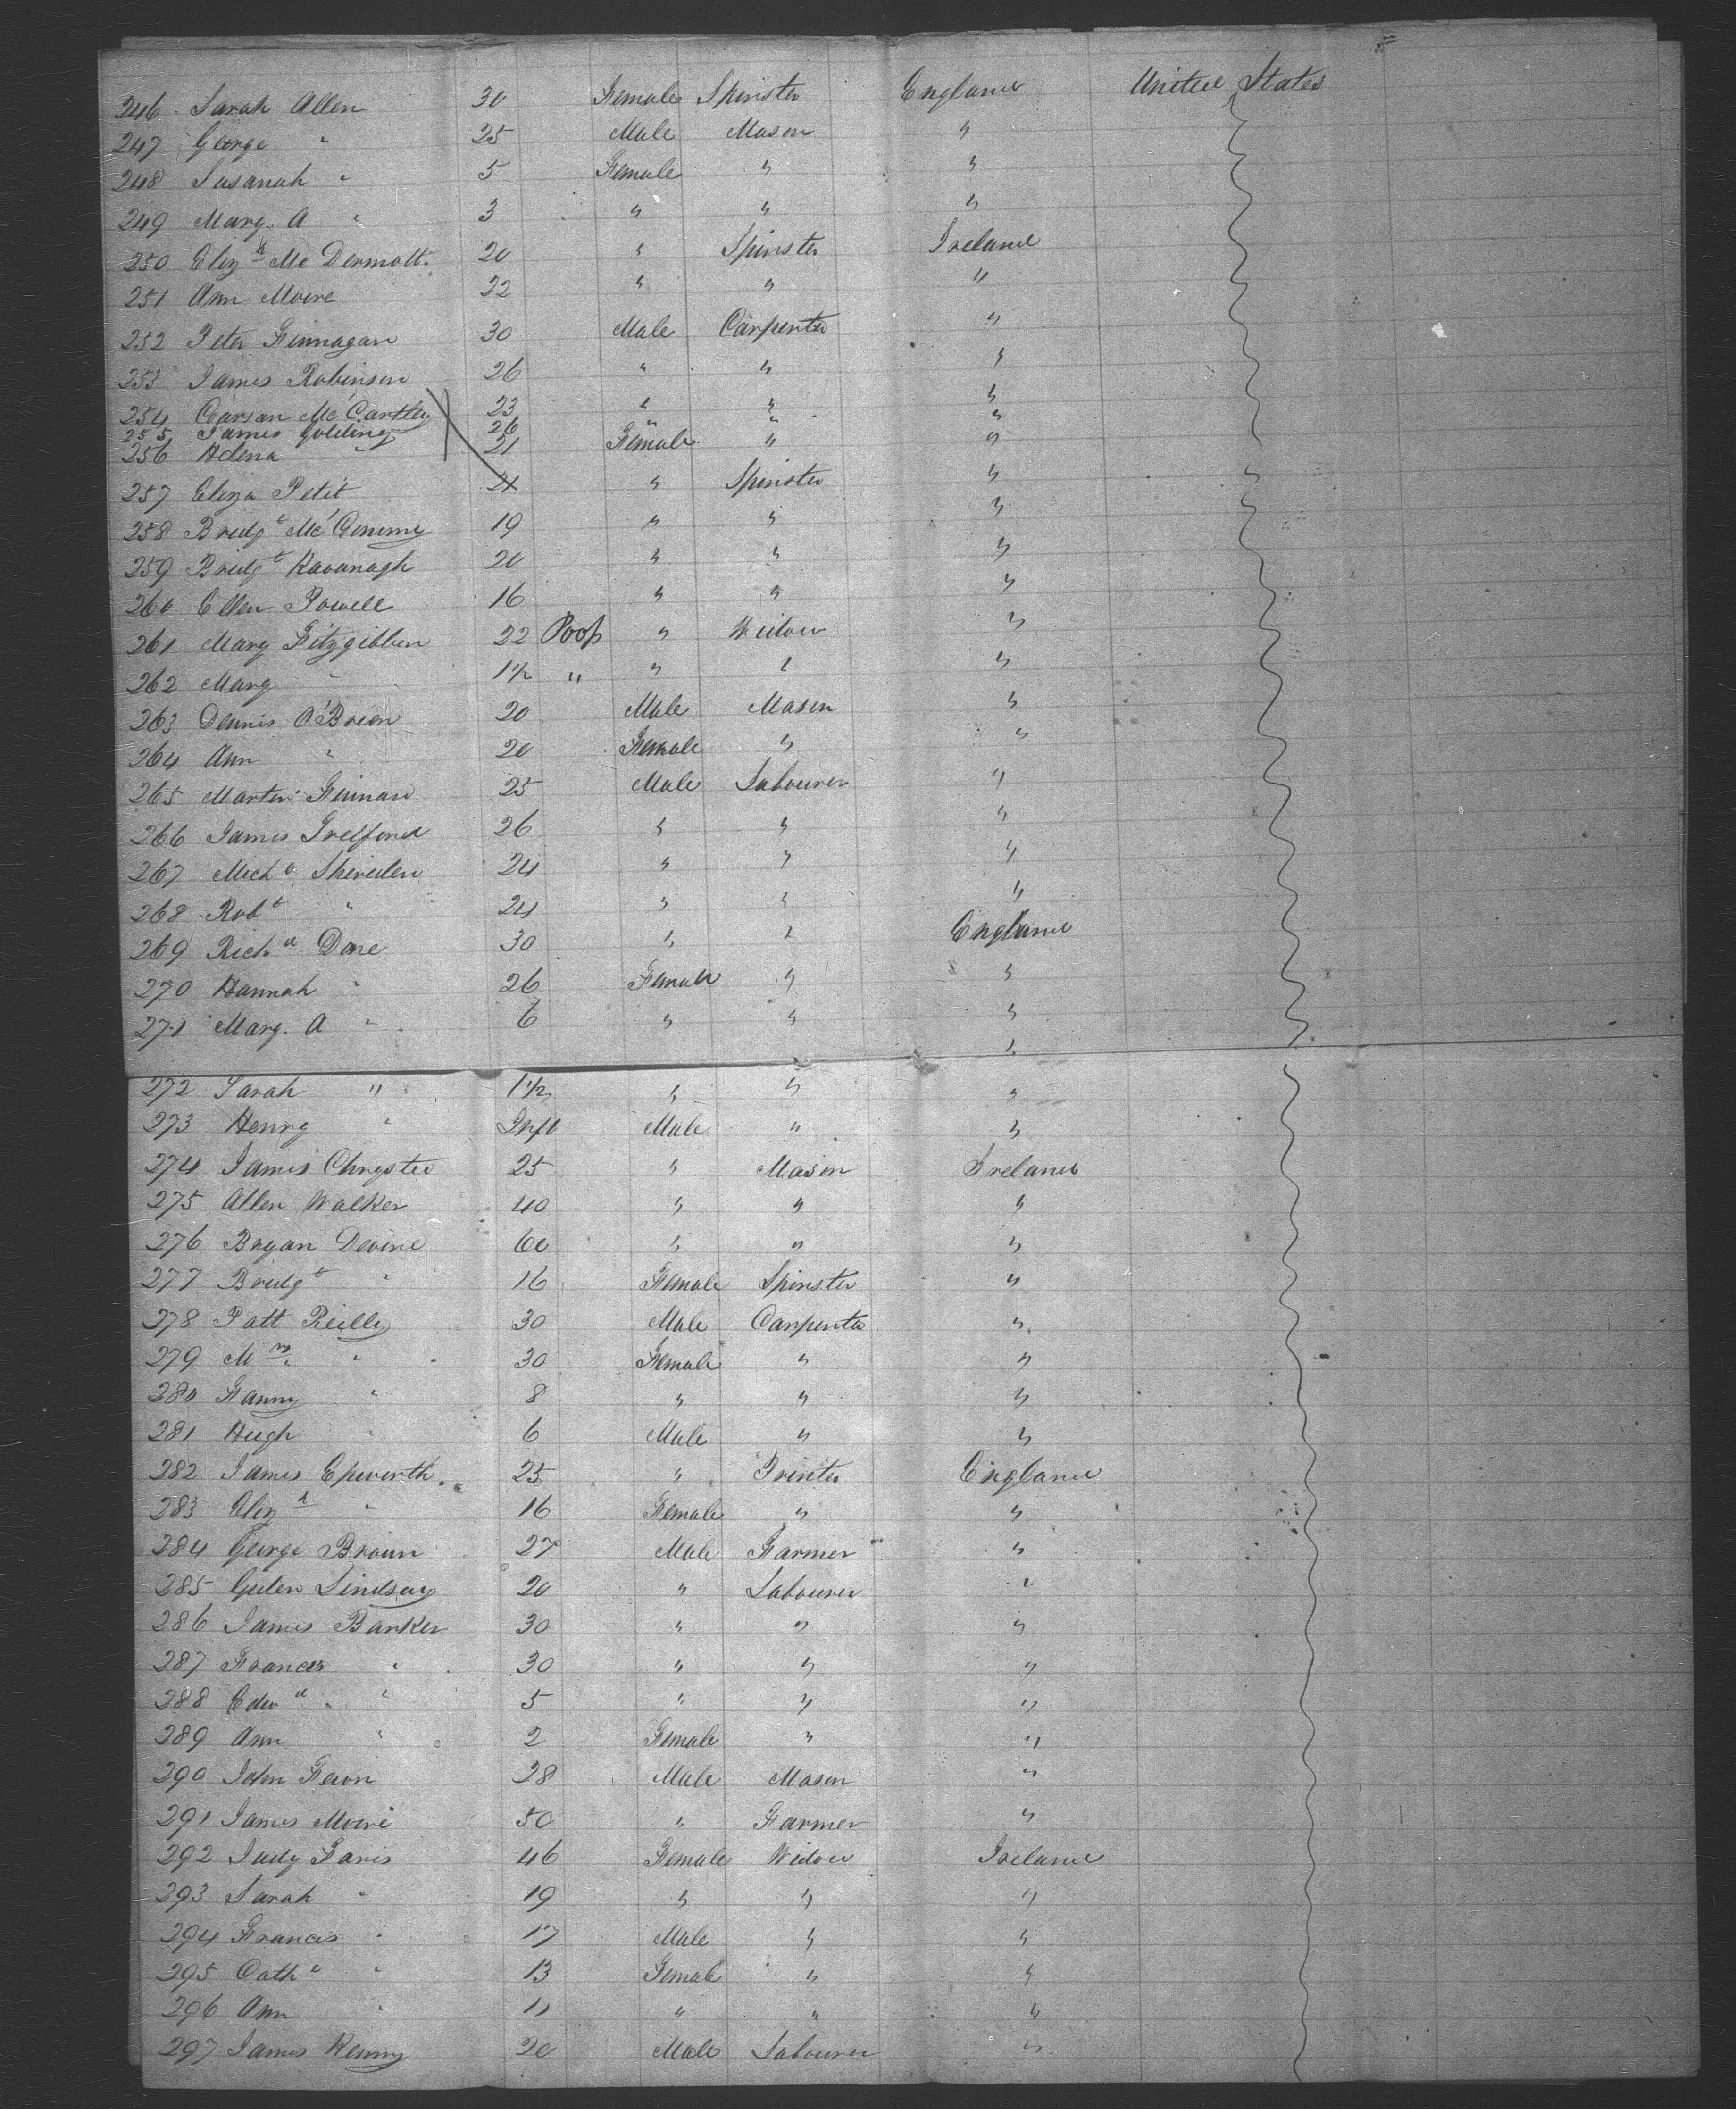 246 Sarah Allen 30 Female Spinster England United States
247 George " 25 Male Mason "
248 Susanah " 5 Female " "
249 Mary. A " 3 " " "
250 Eliz h Mc Dermott. 20 " Spinster Ireland
251 Ann Moore 22 " " "
252 Peter Finnagan 30 Male Carpenter "
253 James Robinson 26 " " "
254 Carson Mc Cartley 23 " " "
255 James Golding 26 " " "
256 Helena " 21 Female " "
257 Eliza Petit 21 " Spinster "
258 Bridg t Mc 19 " " "
259 Bridg t Kavanagh 20 " " "
260 Ellen Powell 16 " " "
261 Mary Fitzgibbon 22 Poop " Widow "
262 Mary " 1 1/2 " " " "
263 Dennis O'Brien 20 Male Mason "
264 Ann " 20 Female " "
265 Martin 25 Male Labourer "
266 James 26 " " "
267 Mich l Sheridan 24 " " "
268 Rob t " 24 " " "
269 Rich d Dore 30 " " England
270 Hannah " 26 Female " "
271 Mary. A " 6 " " "
272 Sarah " 1 1/2 " " "
273 Henry " Inft Male " "
274 James 25 " Mason Ireland
275 Allen Walker 40 " " "
276 Bryan Devine 60 " " "
277 Bridg t " 16 Female Spinster "
278 Patt Reilly 30 Male Carpenter "
279 M rs " 30 Female " "
280 Fanny " 8 " " "
281 Hugh " 6 Male " "
282 James Epworth 25 " Printer England
283 Eliz h " 16 Female " "
284 George Brown 27 Male Farmer "
285 Lindsay 20 " Labourer "
286 James Barker 30 " " "
287 Frances " 30 " " "
288 Edw d " 5 " " "
289 Ann " 2 Female " "
290 John 28 Male Mason "
291 James Moore 50 " Farmer "
292 Judy Faris 46 Female Widow Ireland
293 Sarah " 19 " " "
294 Francis " 17 Male " "
295 Cath e " 13 Female " "
296 Ann " 11 " " "
297 James Kenny 20 Male Labourer "